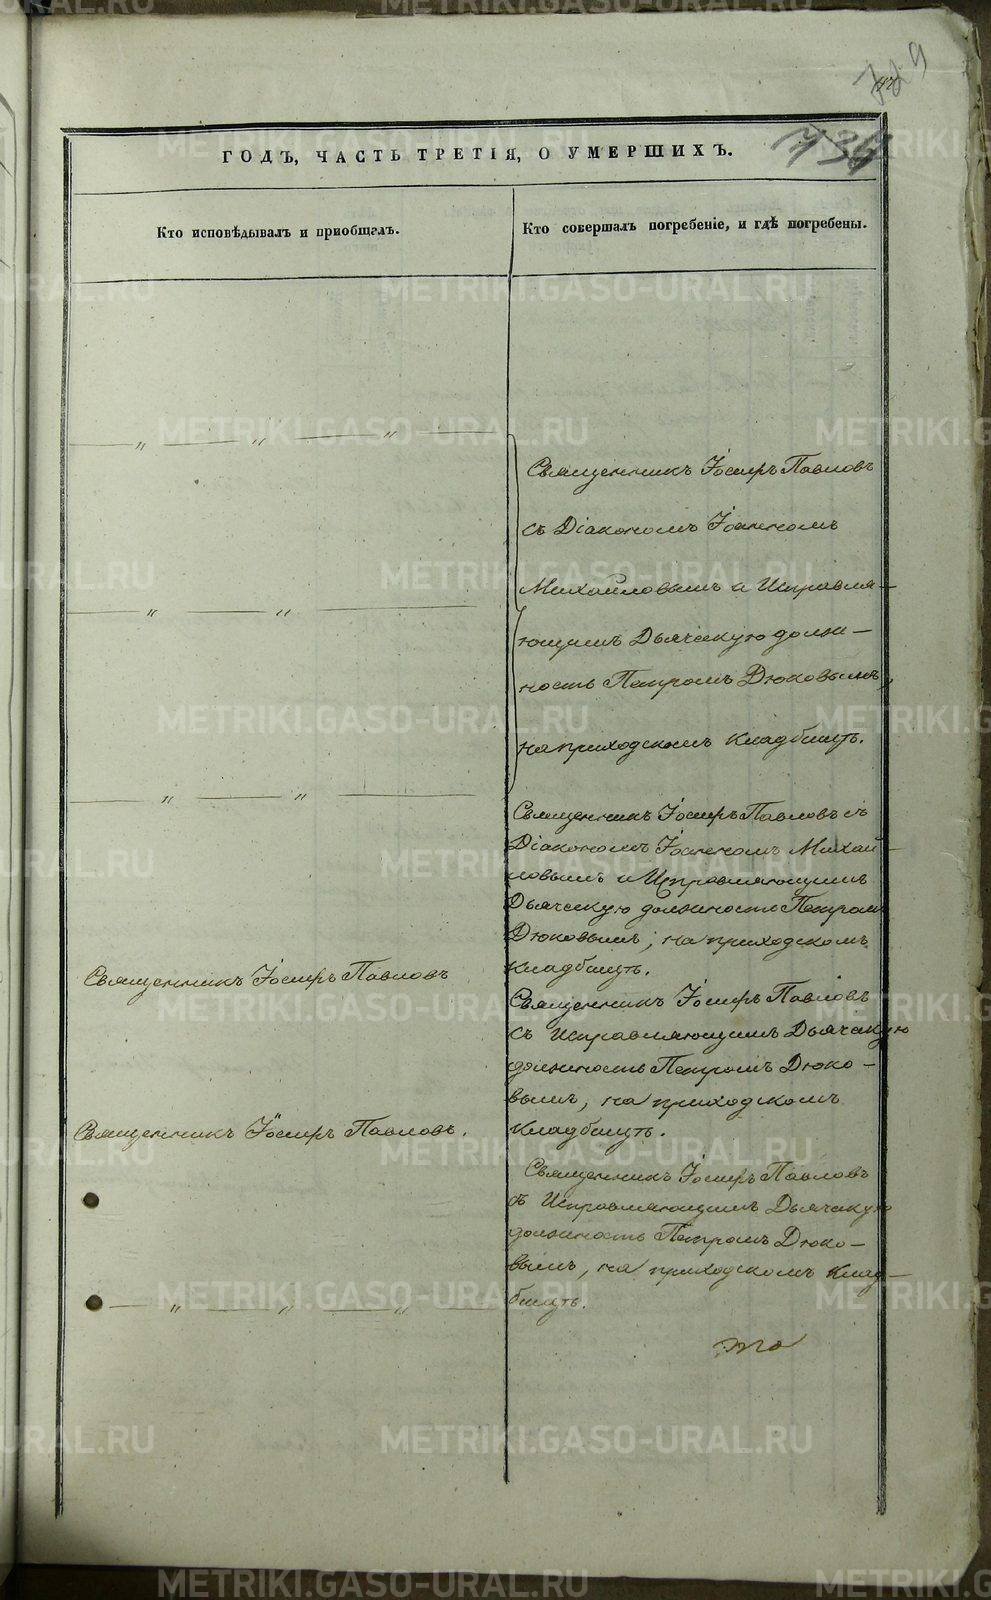 729
734
ГОДЪ, ЧАСТЬ ТРЕТІЯ, О УМЕРШИХЪ.
Кто исповѣдывалъ и пріобщалъ.
Кто совершалъ погребеніе, и гдѣ погребены.
— „ — „ — „ —
Священникъ Іосифъ Павловъ
съ Діакономъ Іоанномъ
Михайловымъ и Исправля—
ющимъ Дьяческую долж—
ность Петромъ Дюковымъ,
на приходскомъ кладбищѣ.
— „ — „ —
— „ — „ —
Священникъ Іосифъ Павловъ съ
Діакономъ Іоанномъ Михай—
ловымъ и Исправляющимъ
Дьяческую должность Петромъ
Дюковымъ, на приходскомъ
кладбищѣ.
Священникъ Іосифъ Павловъ
Священникъ Іосифъ Павловъ
съ Исправляющимъ Дьяческую
должность Петромъ Дюко—
вымъ, на приходскомъ
кладбищѣ.
Священникъ Іосифъ Павловъ.
Священникъ Іосифъ Павловъ
съ Исправляющимъ Дьяческую
должность Петромъ Дюко—
вымъ, на приходскомъ клад—
бищѣ.
— „ — „ — „ —
METRIKI.GASO-URAL.RU